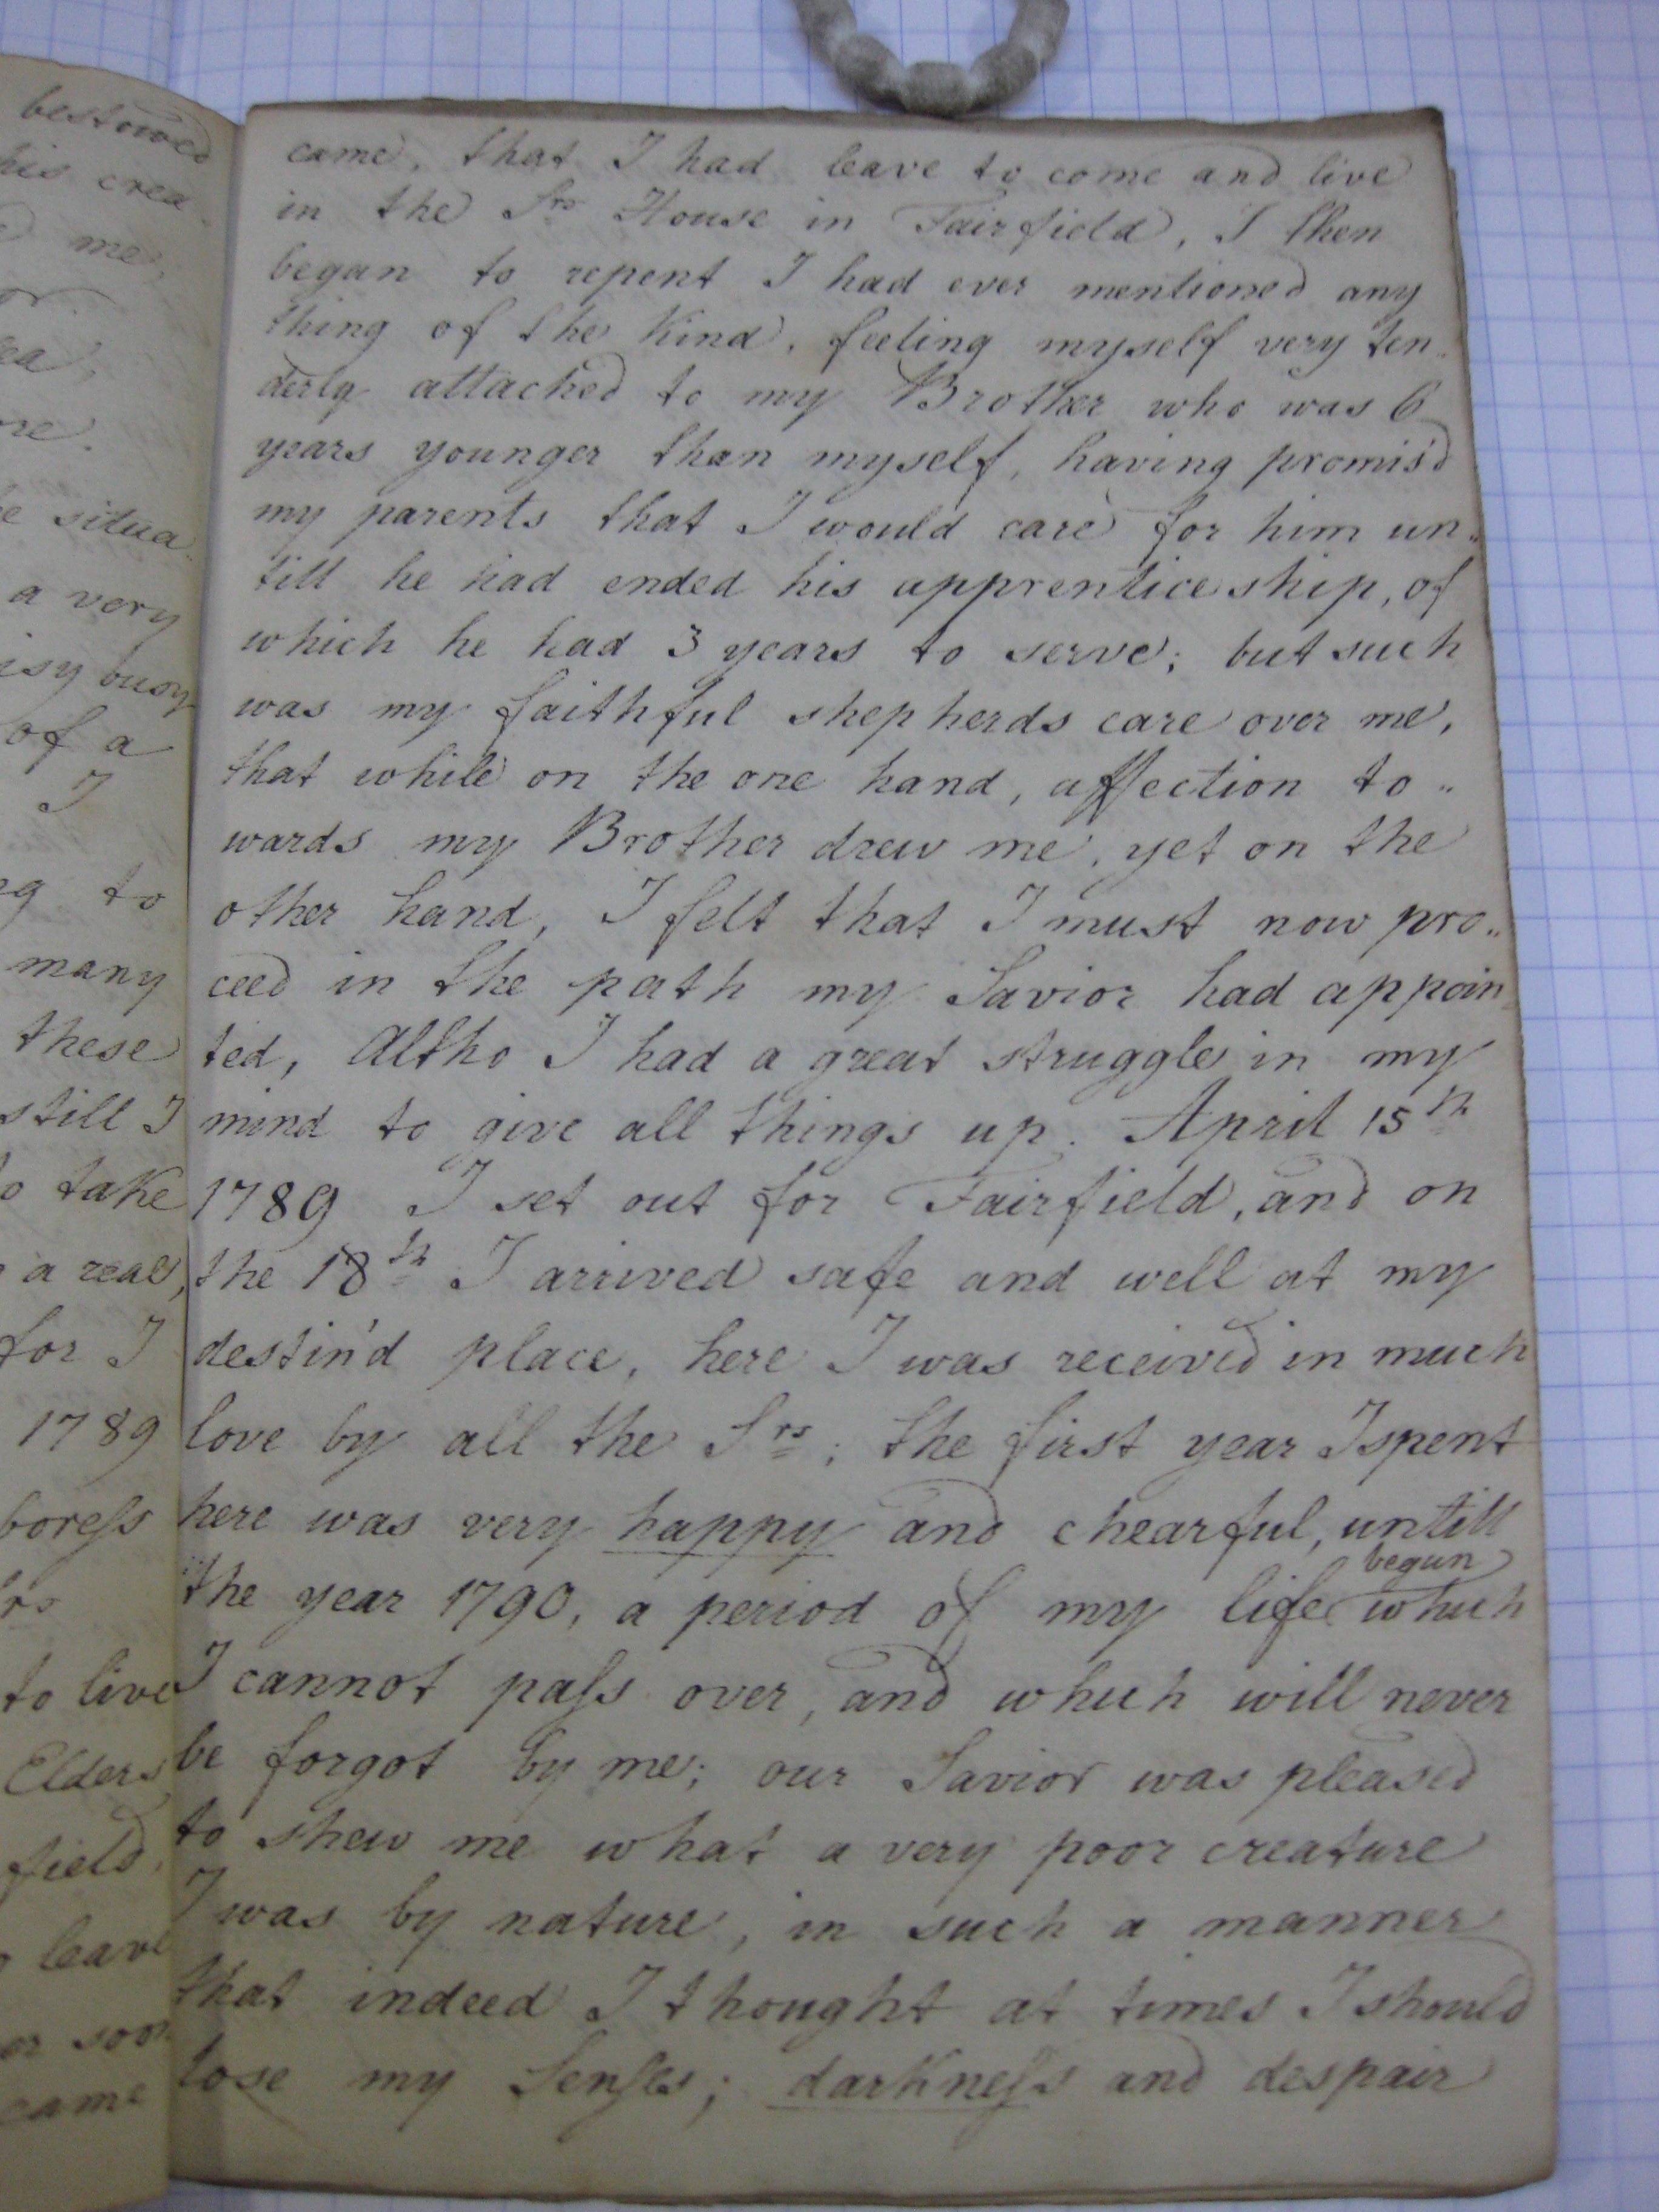 bestowed
his crea
me,
ea,
re.
e situa
a very
isy busy
of a
I
ng to
many
these
still I
o take
a real,
for I
1789
boreſs
rs
to live
Elders
field,
leave
er soon
came
came, that I had leave to come and live
in the Srs House in Fairfield, I then
began to repent I had ever mentioned any
thing of the Kind, feeling myself very ten„
derly attached to my Brother who was 6
years younger than myself, having promis'd
my parents that I would care for him un„
till he had ended his apprenticeship, of
which he had 3 years to serve; but such
was my faithful shepherds care over me,
that while on the one hand, affection to„
wards my Brother drew me, yet on the
other hand, I felt that I must now pro„
ceed in the path my Savior had appoin
ted, Altho I had a great struggle in my
mind to give all things up. April 15th
1789 I set out for Fairfield, and on
the 18th I arrived safe and well at my
destin'd place, here I was received in much
love by all the Srs; the first year I spent
here was very happy and chearful, untill
begun
the year 1790, a period of my life which
I cannot paſs over, and which will never
be forgot by me; our Savior was pleased
to shew me what a very poor creature
I was by nature, in such a manner
that indeed I thought at times I should
lose my Senſes; darkneſs and despair